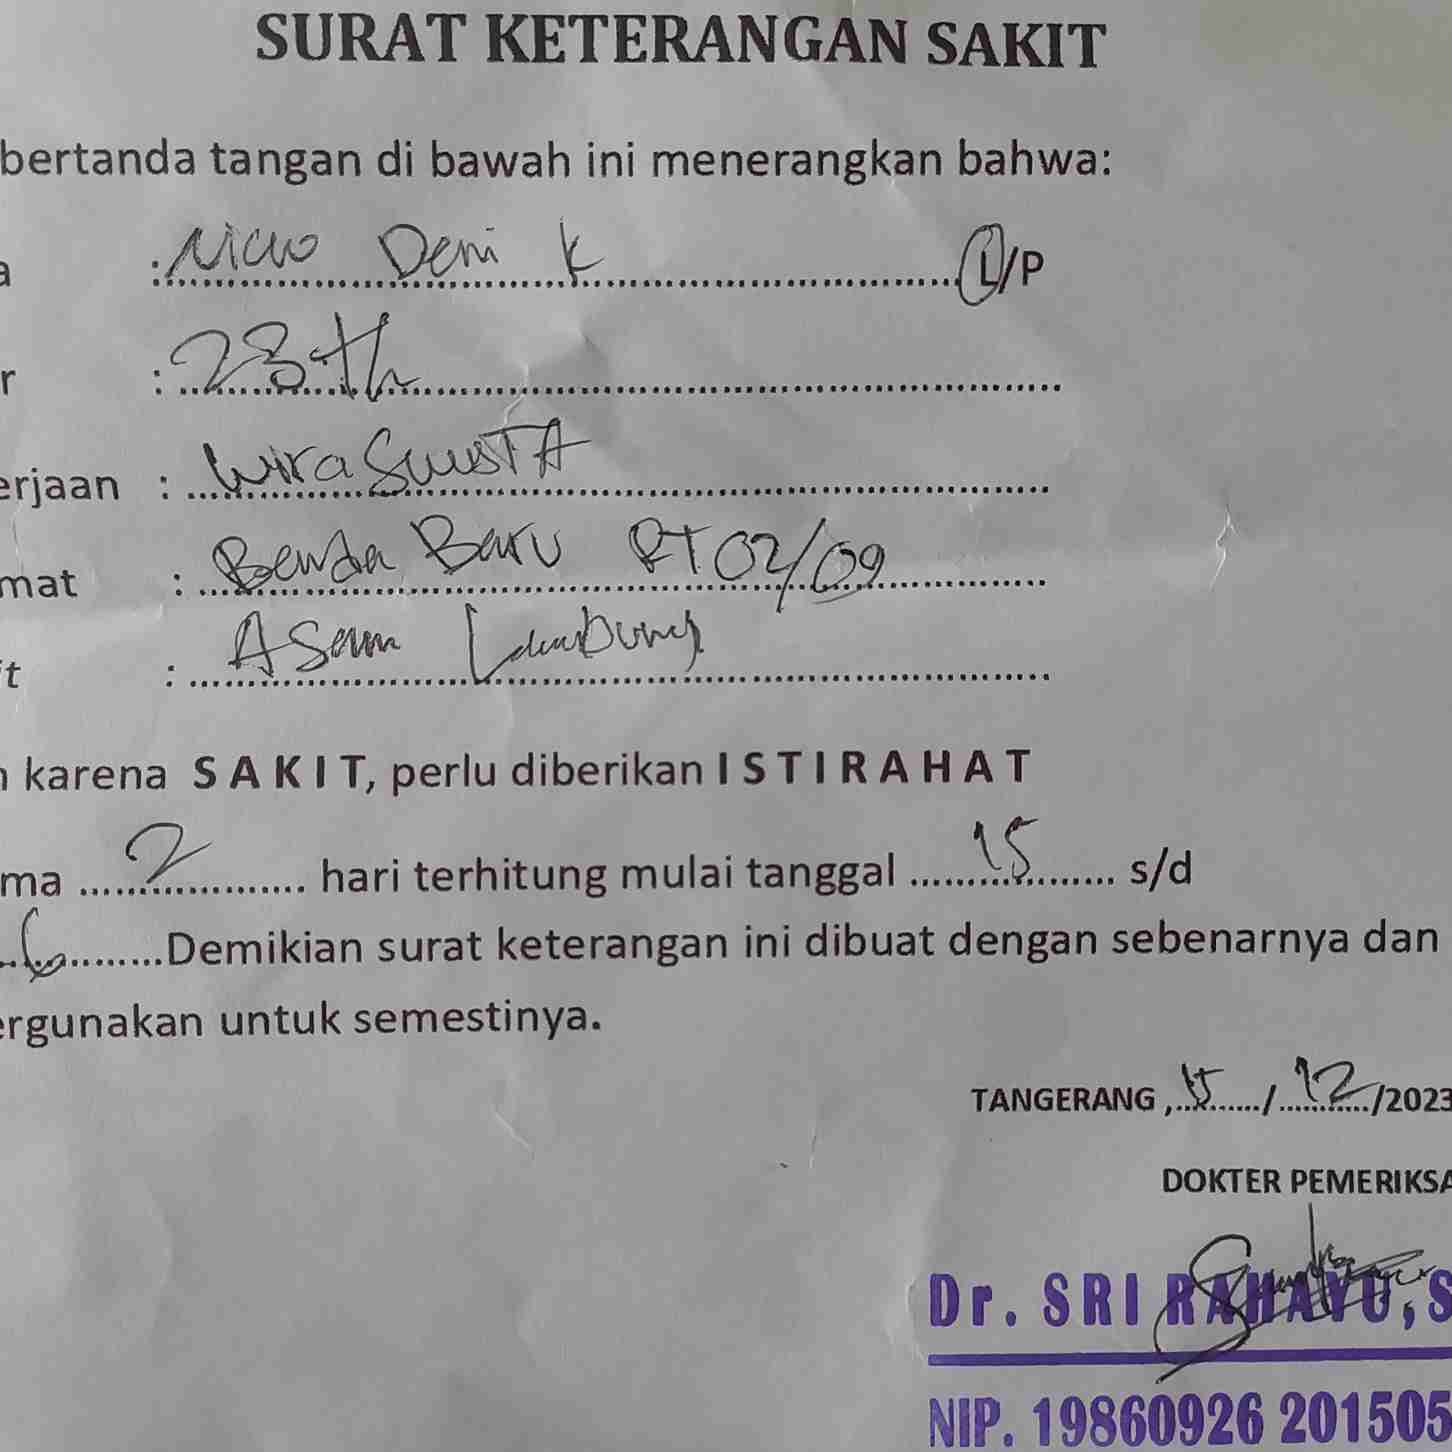 SURAT KETERANGAN SAKIT
bertanda tangan di bawah ini menerangkan bahwa:
a : Nico Deni K L/P
r : 23 th
erjaan : WiraSwastA
mat : Benda Baru RT 02/09
it : ASam Lambung
n karena S A K I T, perlu diberikan I S T I R A H A T
ma 2 hari terhitung mulai tanggal 15 s/d
6 Demikian surat keterangan ini dibuat dengan sebenarnya dan
ergunakan untuk semestinya.
TANGERANG , 15 / 12 /2023
DOKTER PEMERIKSA
Dr. SRI RAHAYU, S
NIP. 19860926 201505